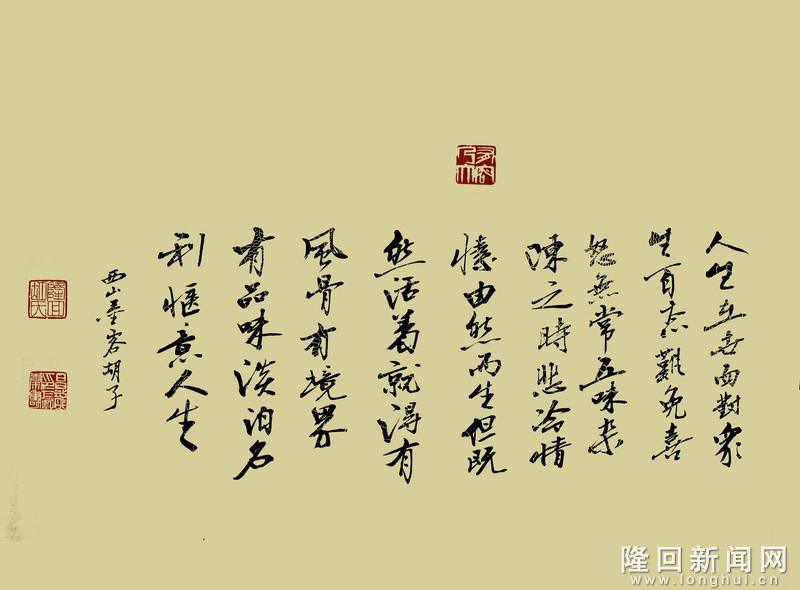 有容乃大
人生在世面對眾
生百态難免喜
怒無常五味雜
陳之時悲冷情
愫由然而生但既
然活着就得有
風骨有境界
有品味淡泊名
利惬意人生
西山墨客胡子
隆回新闻网
www.longhui.cn